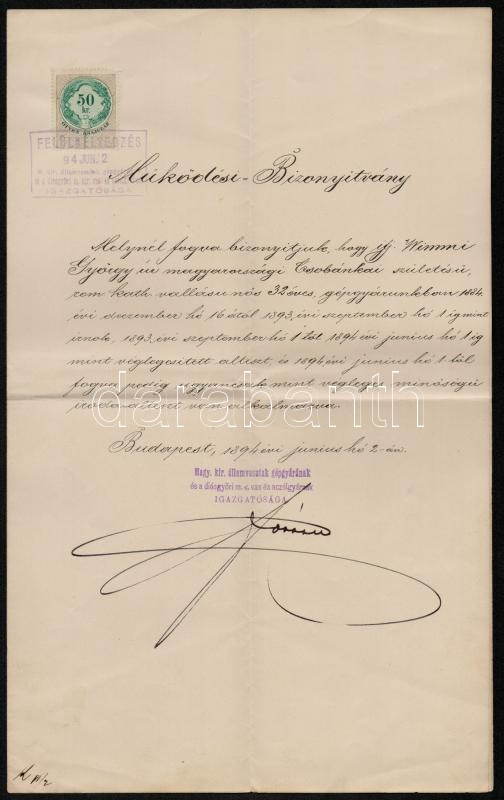 50
kr.
FELÜLBÉLYEGZÉS
94 JUN. 2
IGAZGATÓSÁGA
Működési-Bizonyitvány
Melynél fogva bizonyitjuk, hogy ifj. Wimmi
György úr magyarországi Csobánkai születésű,
rom. kath. vallásu nős 32 éves, gépgyárunkban 1884.
évi dezember hó 16 ától 1893. évi september hó 1 ig mint
irnok, 1893. évi september hó 1 től 1894 évi junius hó 1 ig
mint véglegesitett altiszt, és 1894 évi junius hó 1 től
fogva pedig ugyancsak mint végleges minőségű
iroda-altiszt van alkalmazva.
Budapest, 1894 évi junius hó 2-án.
Magy. kir. államvasutak gépgyárának
és a diósgyőri m. k. vas és aczélgyárnak
IGAZGATÓSÁGA
darabanth